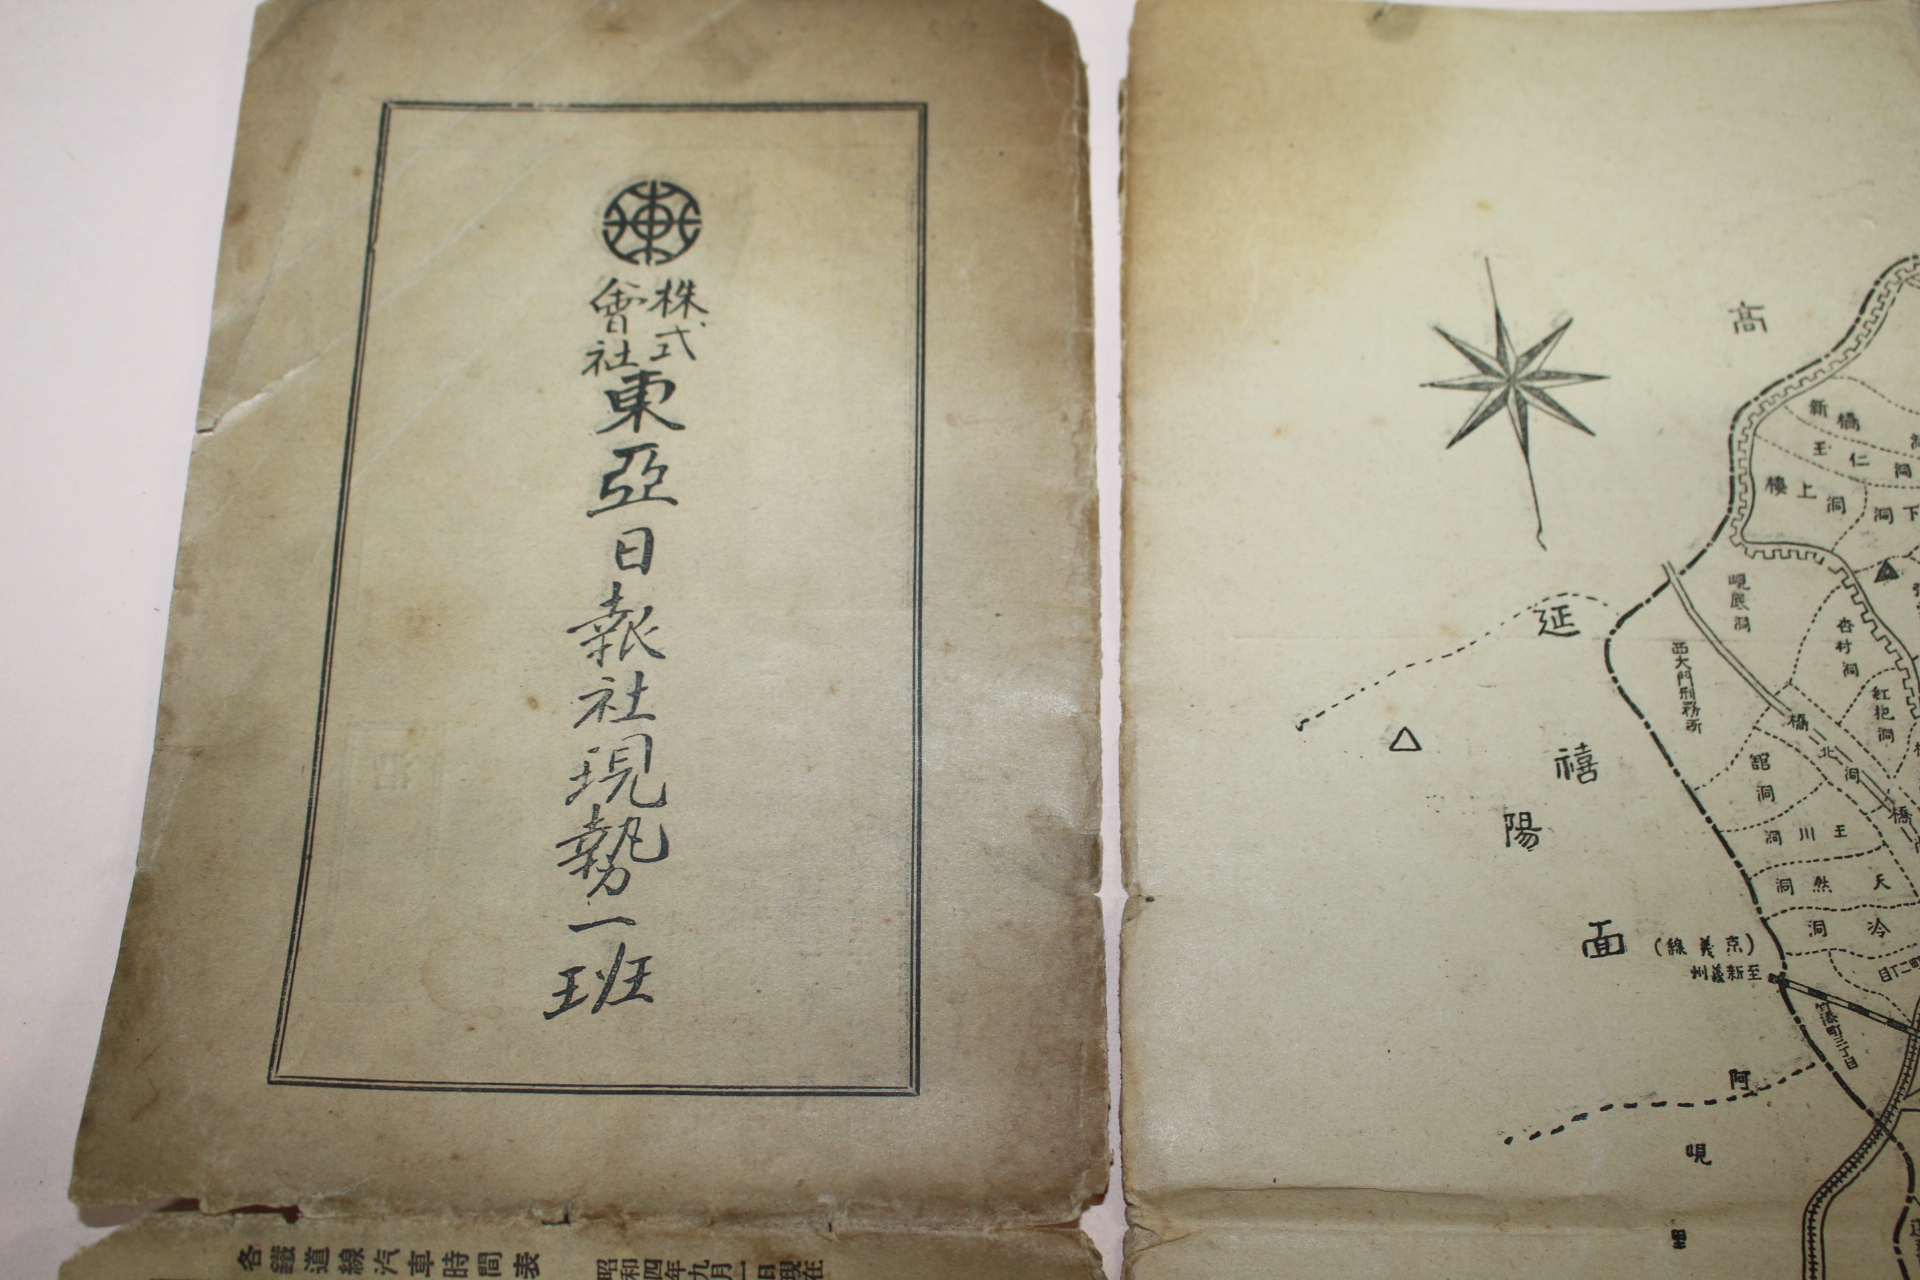 株式
會社
東亞日報社現勢一班
各鐵道線汽車時間表
昭和四年九月一日現在
高
延
禧
面
陽
新橋
王仁洞
樓上洞
峴底洞
西大門刑務所
杏村洞
紅把洞
橋北洞
館洞
王川洞
天然洞
冷洞
(京義線)
至新義州
阿
峴